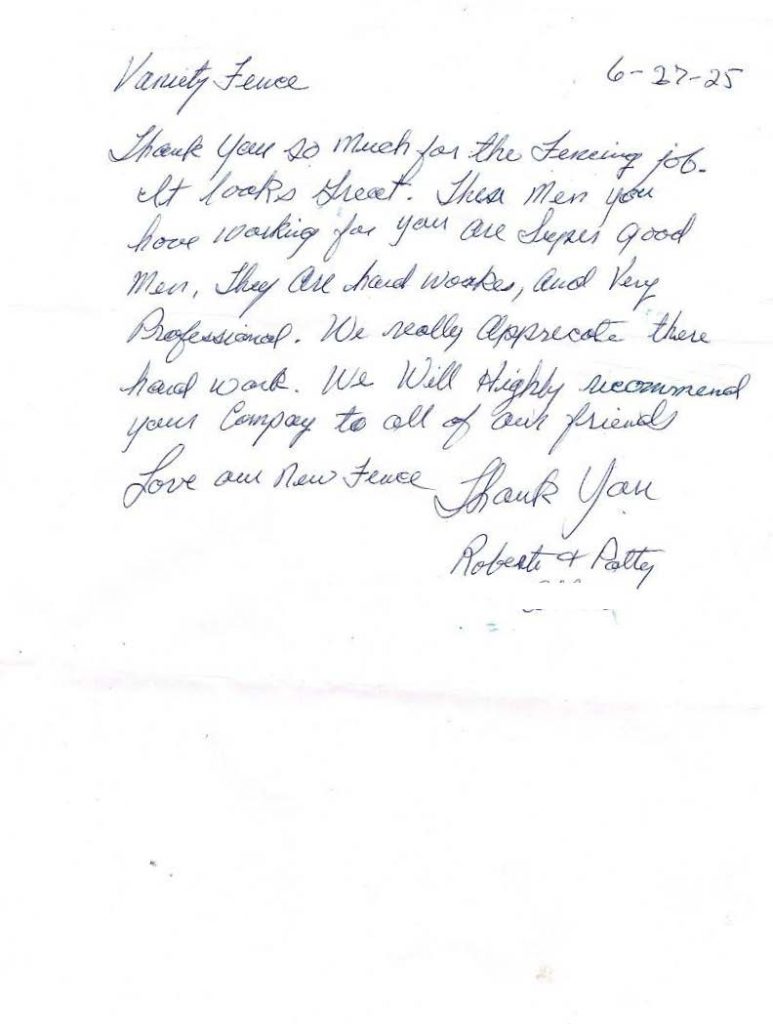 Variety Fence 6-27-25
Thank You so much for the Fencing job.
It looks Great. These Men you
have working for you are Super good
Men, They are hard workes, and Very
Professional. We really Apprecate there
hard work. We Will Highly recommend
your Compay to all of our friends
Love our New Fence Thank You
Robert & Patty